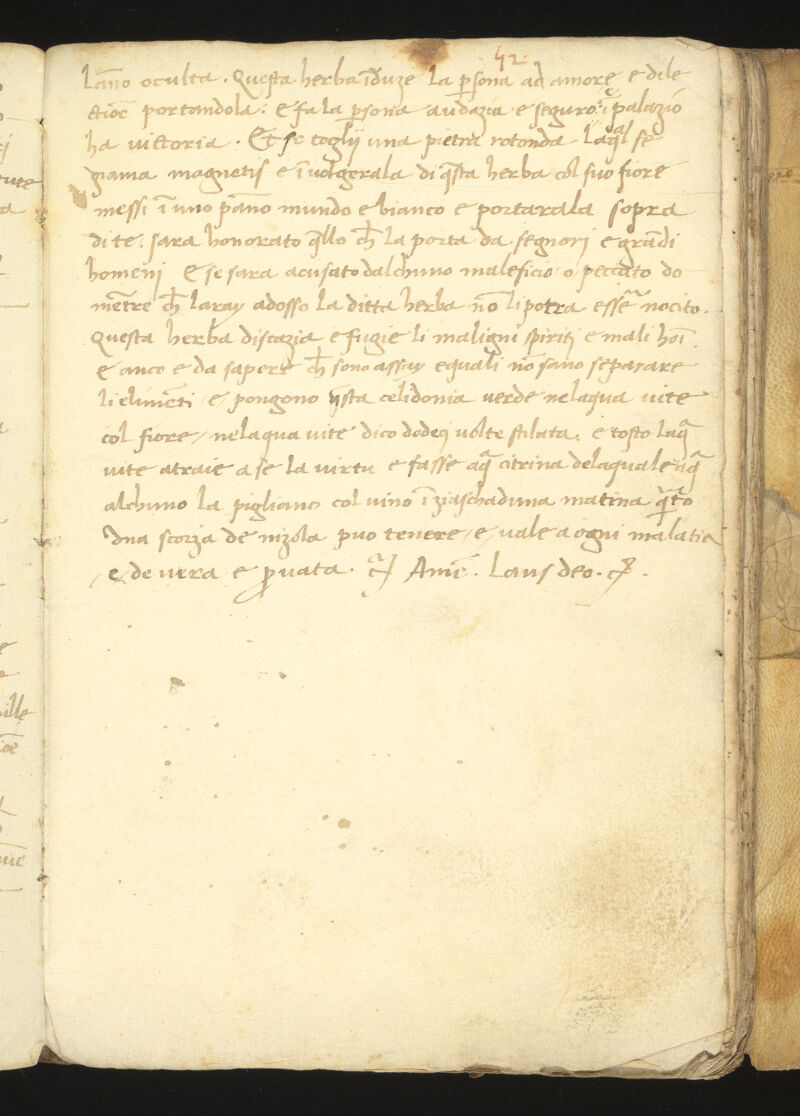 42.
lāno oculta. Questa herba īduze la psona ad amore e dile
ctiōe portandola: e fa la psona audazia e seguro: ī palazio
ha uictoria. Et se toglij una pietra rotonda laql se
giama magnetis e īuolgerala di qsta herba col suo fiore
messi ī uno pāno mundo e bianco e portarala sopra
di te. sara honorato qllo ch la porta da segnorj e grādi
homenj e se sara acusato dalchuno maleficio o peccato do
mētre ch laray adosso la ditta herba nō li potra essē nocito.
Questa herba discazia e fugie li maligni spiriti e mali hoī.
e anco e da sapere ch sono assay equali nō sano separare
li elimēti e pongono qsta celidonia uerde nelaqua uite
col fiore/ nelaqua uite dico dodeci uolte stilata. e tosto laq
uite atraie a se la uirtu e fasse aq citrina delaquale aq
alchuno la pigliano col uino ī ziaschaduna matina qto
una scorza de nizola puo tenere/ e uale a ogni malatia
/e/ de uera e puata. Amē. Laus deo.